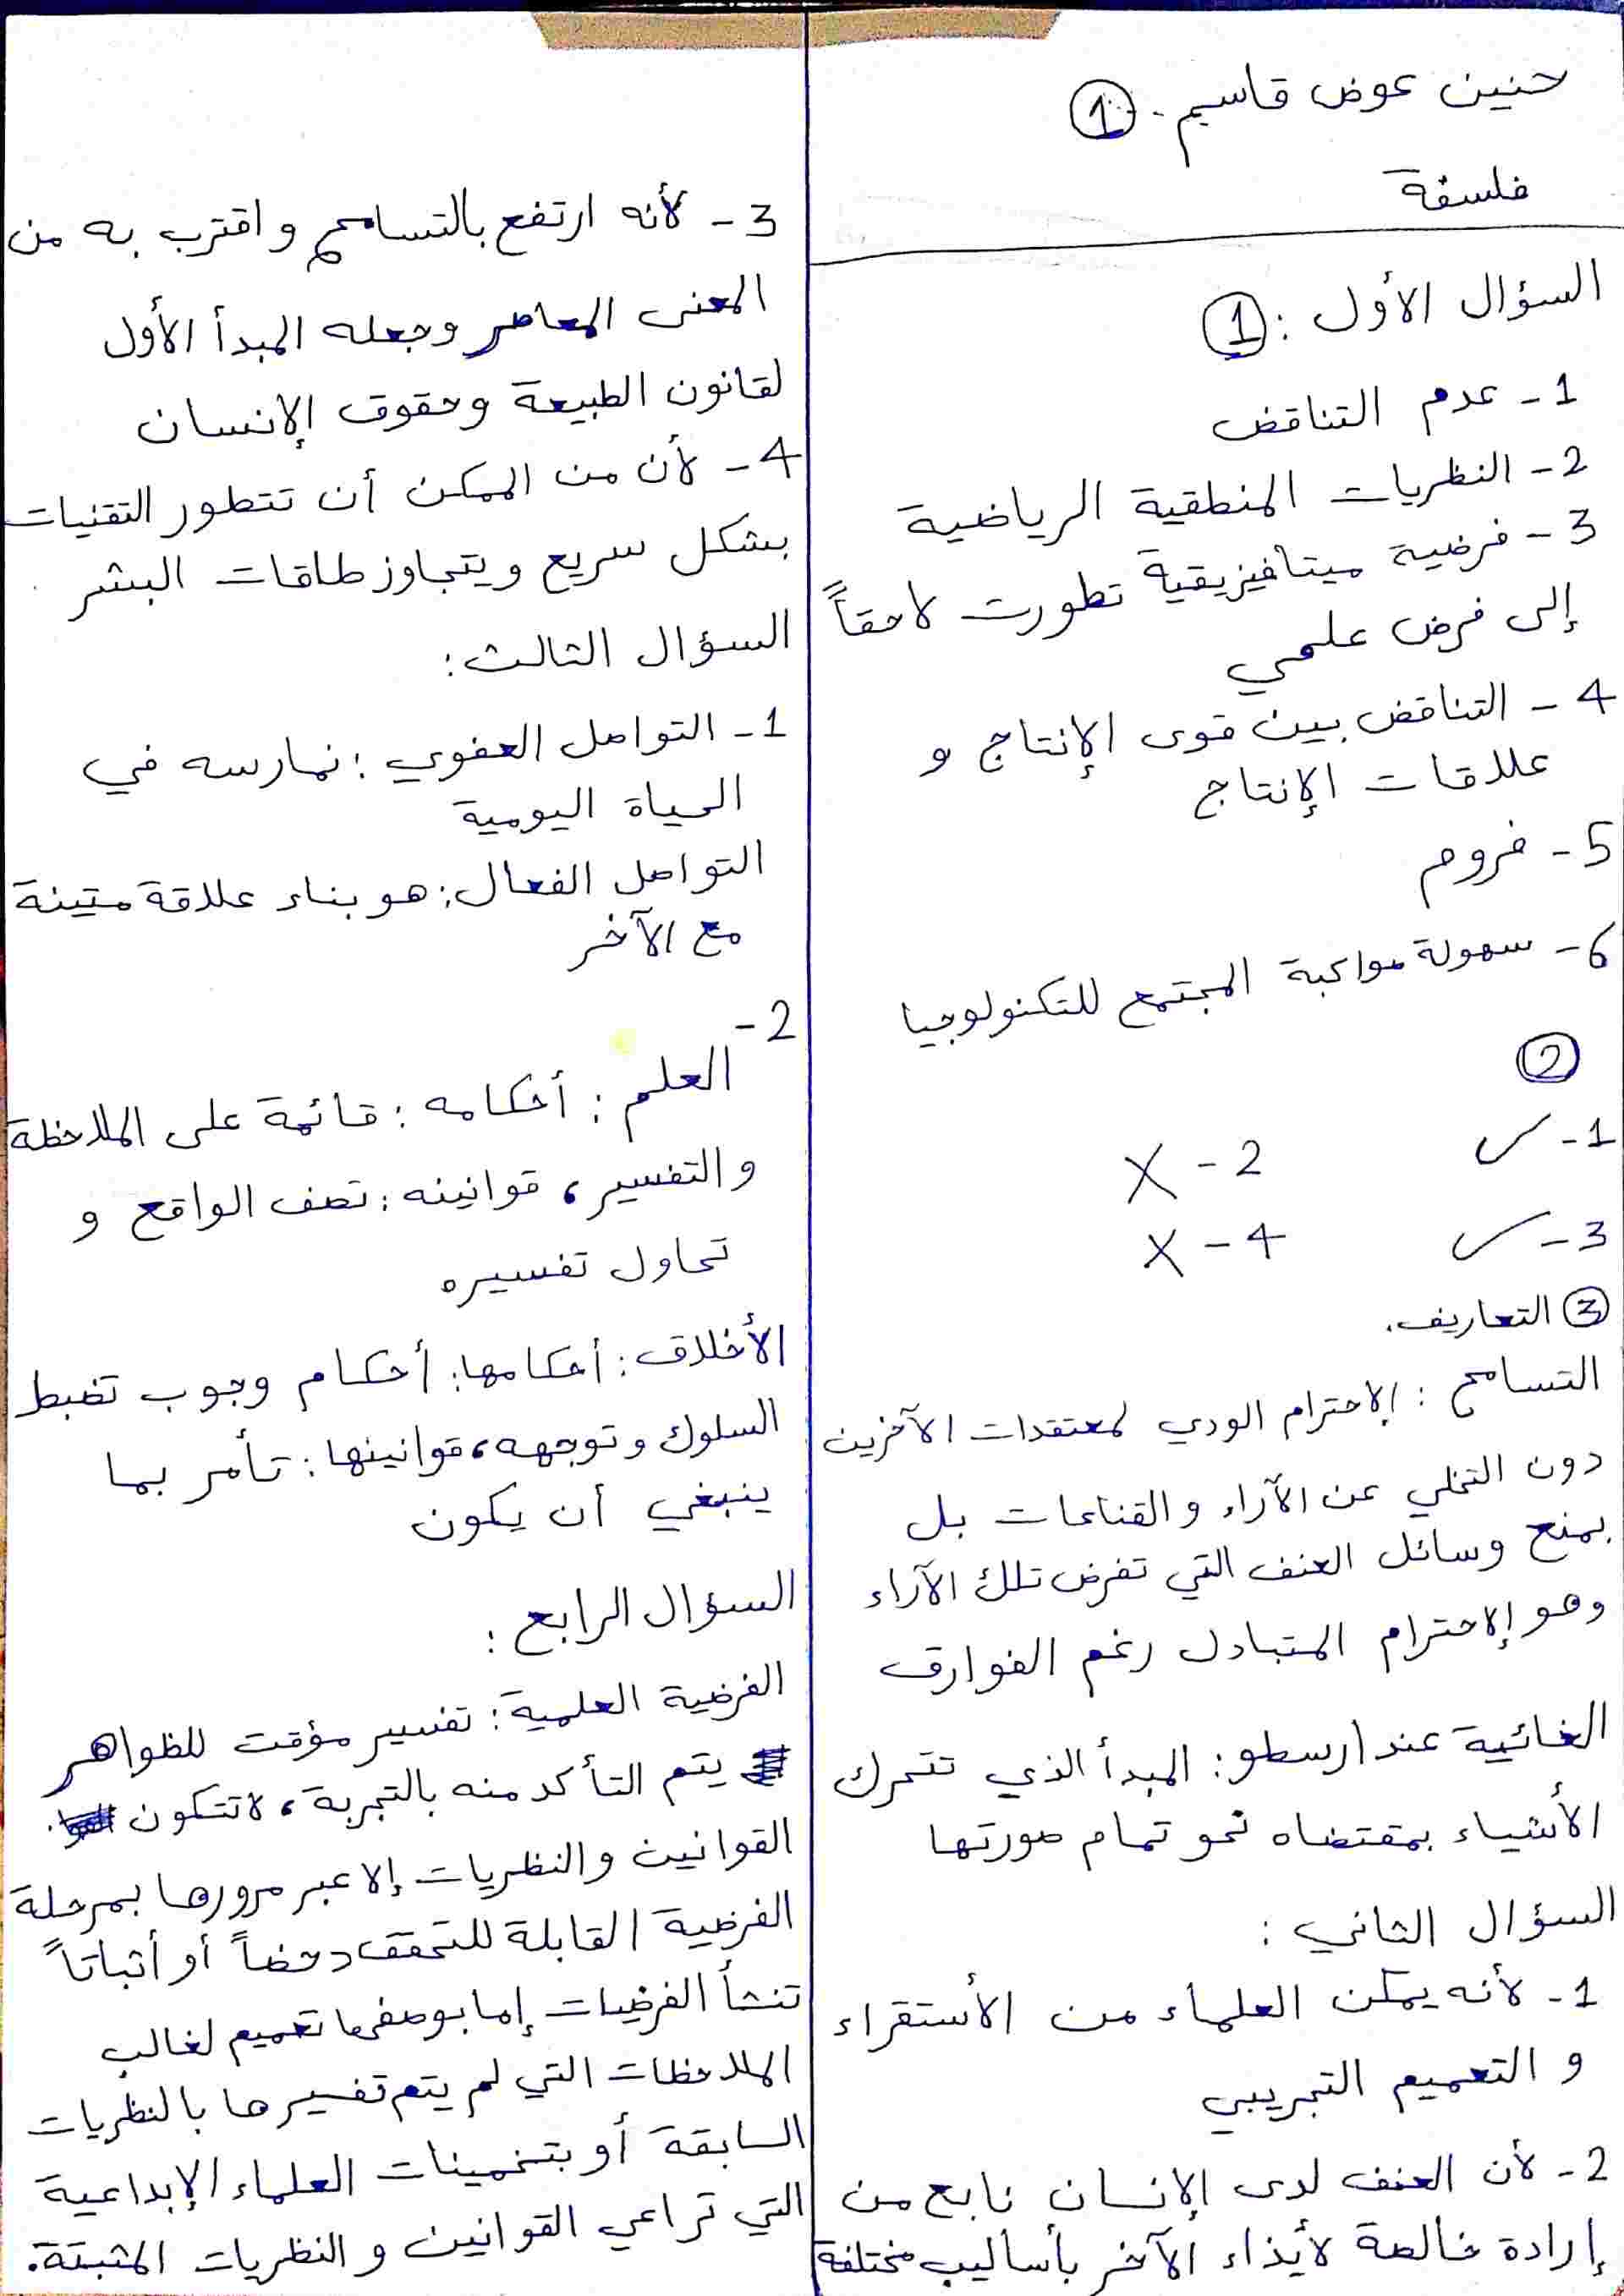 حنين عوض قاسم. ①
فلسفة
السؤال الأول: ①
1- عدم التناقض
2- النظريات المنطقية الرياضية
3- فرضية ميتافيزيقية تطورت لاحقاً
إلى فرض علمي
4- التناقض بين قوى الإنتاج و
علاقات الإنتاج
5- فروم
6- سهولة مواكبة المجتمع للتكنولوجيا
②
1- ✓ 2- X
3- ✓ 4- X
③ التعاريف.
التسامح: الإحترام الودي لمعتقدات الآخرين
دون التخلي عن الآراء والقناعات بل
بمنع وسائل العنف التي تفرض تلك الآراء
وهو الإحترام المتبادل رغم الفوارق
الغائية عند ارسطو: المبدأ الذي تتحرك
الأشياء بمقتضاه نحو تمام صورتها
السؤال الثاني:
1- لأنه يمكن العلماء من الأستقراء
و التعميم التجريبي
2- لأن العنف لدى الإنسان نابع من
إرادة خالصة لأيذاء الآخر بأساليب مختلفة
3- لأنه ارتفع بالتسامح واقترب به من
المعنى المعاصر وجعله المبدأ الأول
لقانون الطبيعة وحقوق الإنسان
4- لأن من الممكن أن تتطور التقنيات
بشكل سريع ويتجاوز طاقات البشر
السؤال الثالث:
1- التواصل العفوي: نمارسه في
الحياة اليومية
التواصل الفعال: هو بناء علاقة متينة
مع الآخر
2-
العلم: أحكامه: قائمة على الملاحظة
والتفسير، قوانينه: تصف الواقع و
تحاول تفسيره
الأخلاق: أحكامها: أحكام وجوب تضبط
السلوك وتوجهه، قوانينها: تأمر بما
ينبغي أن يكون
السؤال الرابع:
الفرضية العلمية: تفسير مؤقت للظواهر
يتم التأكد منه بالتجربة، لا تتكون
القوانين والنظريات إلا عبر مرورها بمرحلة
الفرضية القابلة للتحقق دحضاً أو أثباتاً
تنشأ الفرضيات إما بوصفها تعميم لغالب
الملاحظات التي لم يتم تفسيرها بالنظريات
السابقة أو بتخمينات العلماء الإبداعية
التي تراعي القوانين والنظريات المثبتة.